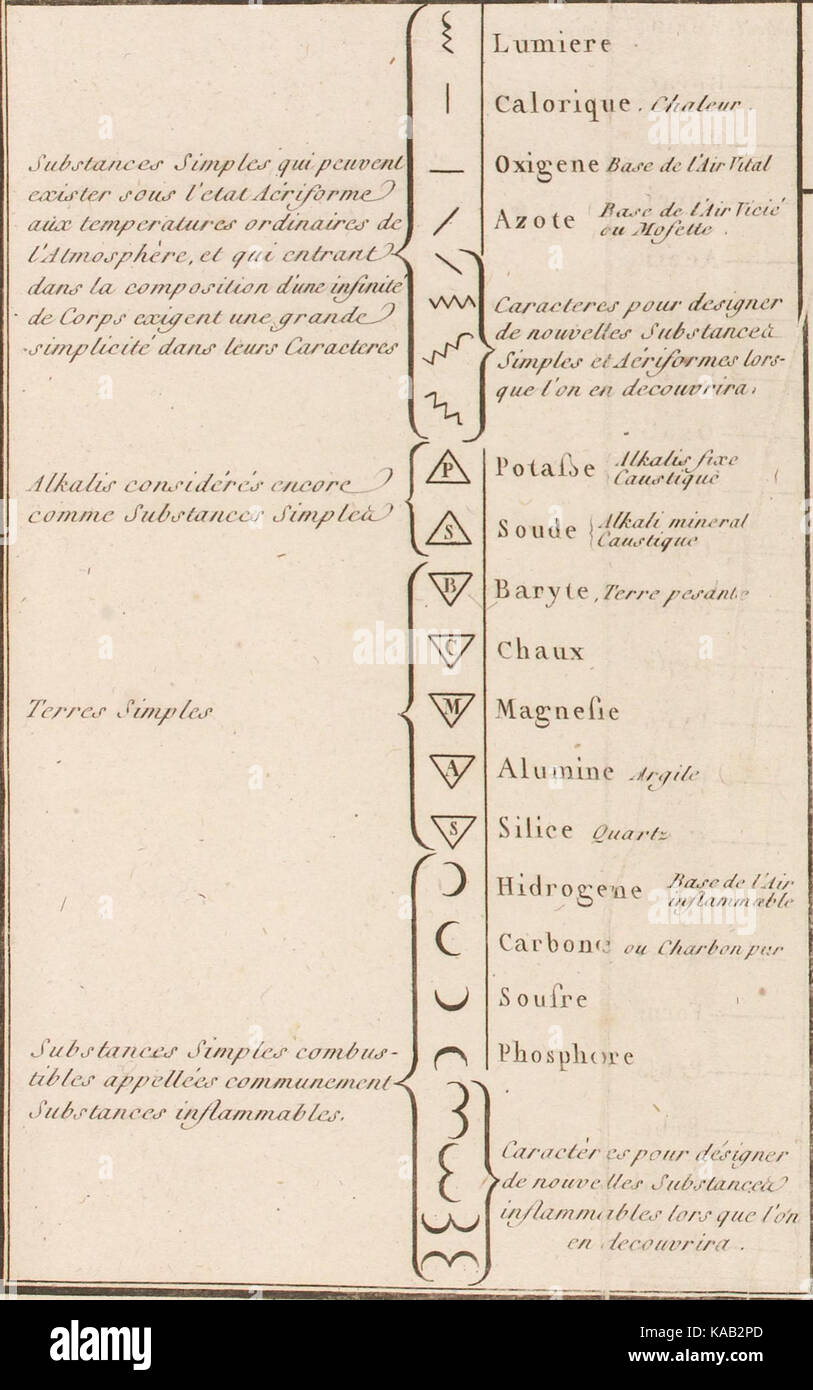 Lumiere
Calorique. Chaleur.
Substances Simples qui peuvent
exister sous l'etat Aëriforme
aux temperatures ordinaires de
l'Atmosphère, et qui entrant
dans la composition d'une infinité
de Corps exigent une grande
simplicité dans leurs Caracteres
Oxigene Base de l'Air Vital
Azote Base de l'Air Vicié
ou Mofette.
Caracteres pour designer
de nouvelles Substances
Simples et Aëriformes lors-
que l'on en decouvrira.
Alkalis considérés encore
comme Substances Simples
P Potaſse Alkalis fixe
Caustique
S Soude Alkali mineral
Caustique
Terres Simples
B Baryte, Terre pesante
C Chaux
M Magneſie
A Alumine Argile
S Silice Quartz
Substances Simples combus-
tibles appellées communement
Substances inflammables.
Hidrogene Base de l'Air
inflammable
Carbone ou Charbon pur
Soufre
Phosphore
Caractères pour désigner
de nouvelles Substances
inflammables lors que l'on
en decouvrira.
alamy
a
alamy stock photo
KAB2PD
www.alamy.com